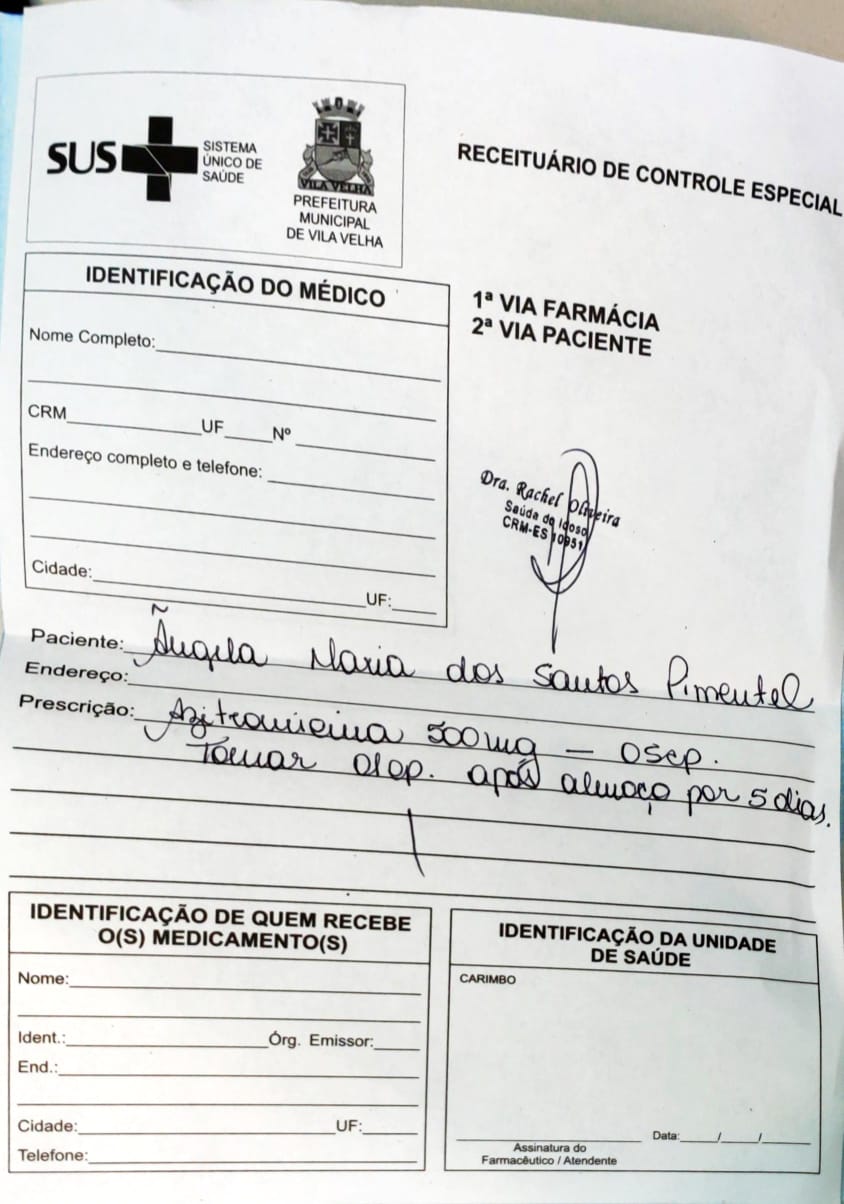 SUS
SISTEMA
ÚNICO DE
SAÚDE
VILA VELHA
PREFEITURA
MUNICIPAL
DE VILA VELHA
RECEITUÁRIO DE CONTROLE ESPECIAL
IDENTIFICAÇÃO DO MÉDICO
1ª VIA FARMÁCIA
2ª VIA PACIENTE
Nome Completo:
CRM UF Nº
Endereço completo e telefone:
Cidade: UF:
Dra. Rachel Oliveira
Saúda do Idoso
CRM-ES 10951
Paciente: Ângela Maria dos Santos Pimentel
Endereço:
Prescrição: Azitromicina 500mg — 05cp.
Tomar 01cp. após almoço por 5 dias.
IDENTIFICAÇÃO DE QUEM RECEBE
O(S) MEDICAMENTO(S)
Nome:
Ident.: Órg. Emissor:
End.:
Cidade: UF:
Telefone:
IDENTIFICAÇÃO DA UNIDADE
DE SAÚDE
CARIMBO
Data: / /
Assinatura do
Farmacêutico / Atendente